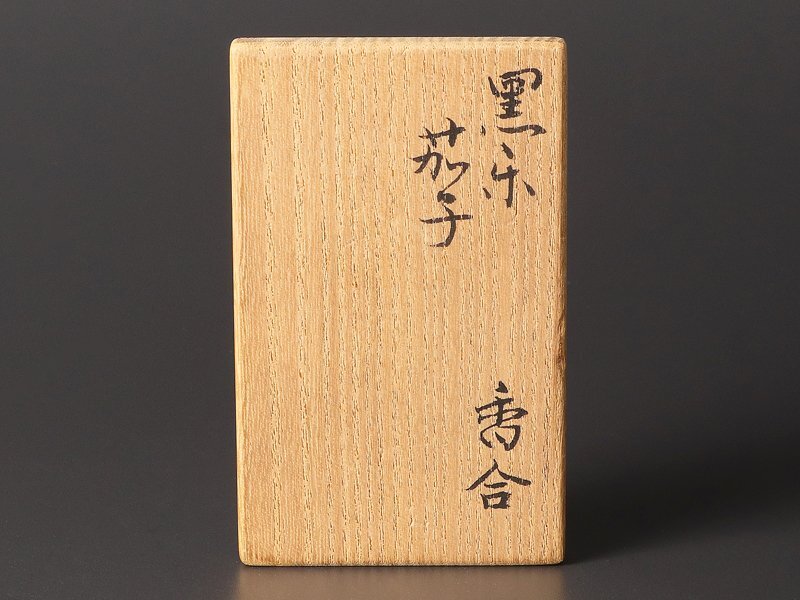 黒楽
茄子
香合